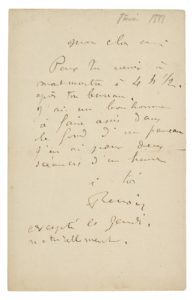 Février 1888
mon cher ami
Peux tu venir à
montmartre à 4 h ½
après ton bureau
j'ai un bonhomme
à faire assis dans
le fond d'un
j'en ai pour deux
séances d'une heure
à toi
Renoir
excepté le jeudi,
naturellement.